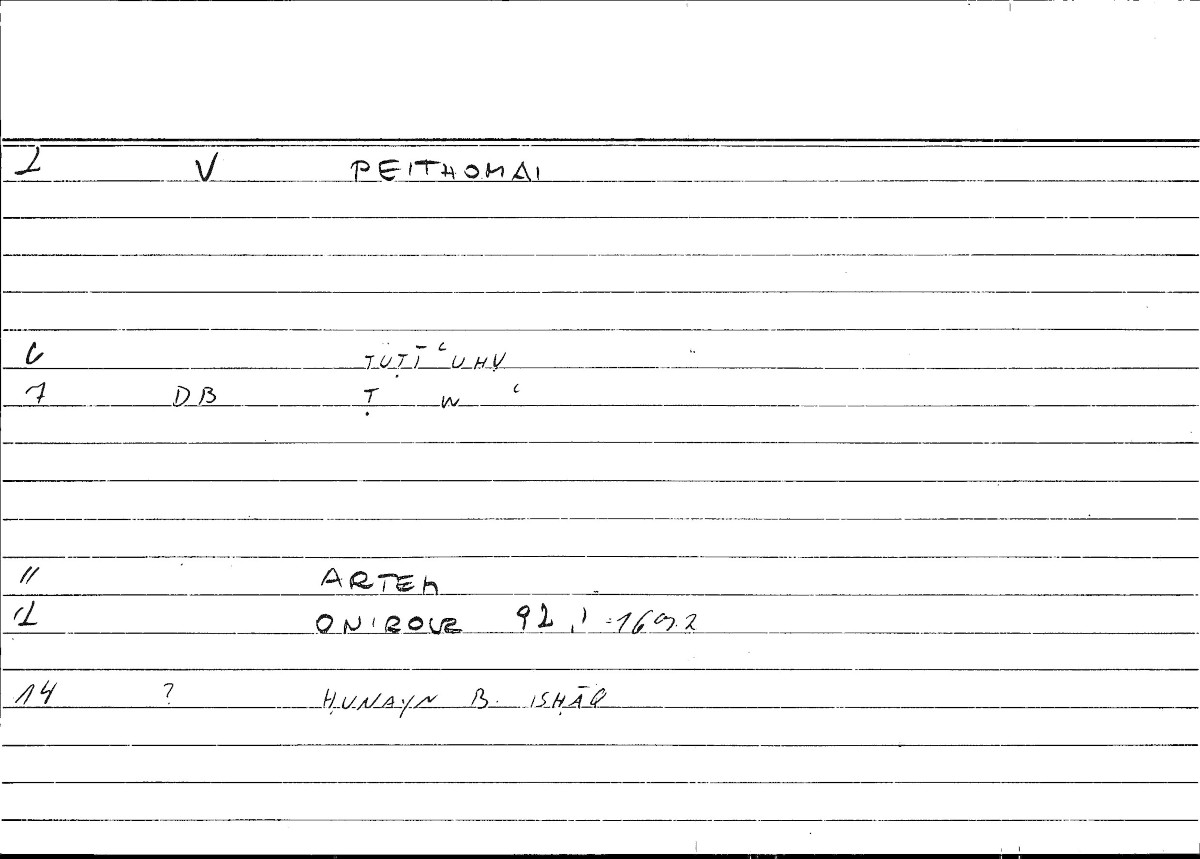 1 V PEITHOMAI
6 TUṬĪʿUHU
7 DB Ṭ W ʿ
11 ARTEM
12 ONIROCR 92,1 = 169.2
14 ? ḤUNAYN B. ISḤĀQ